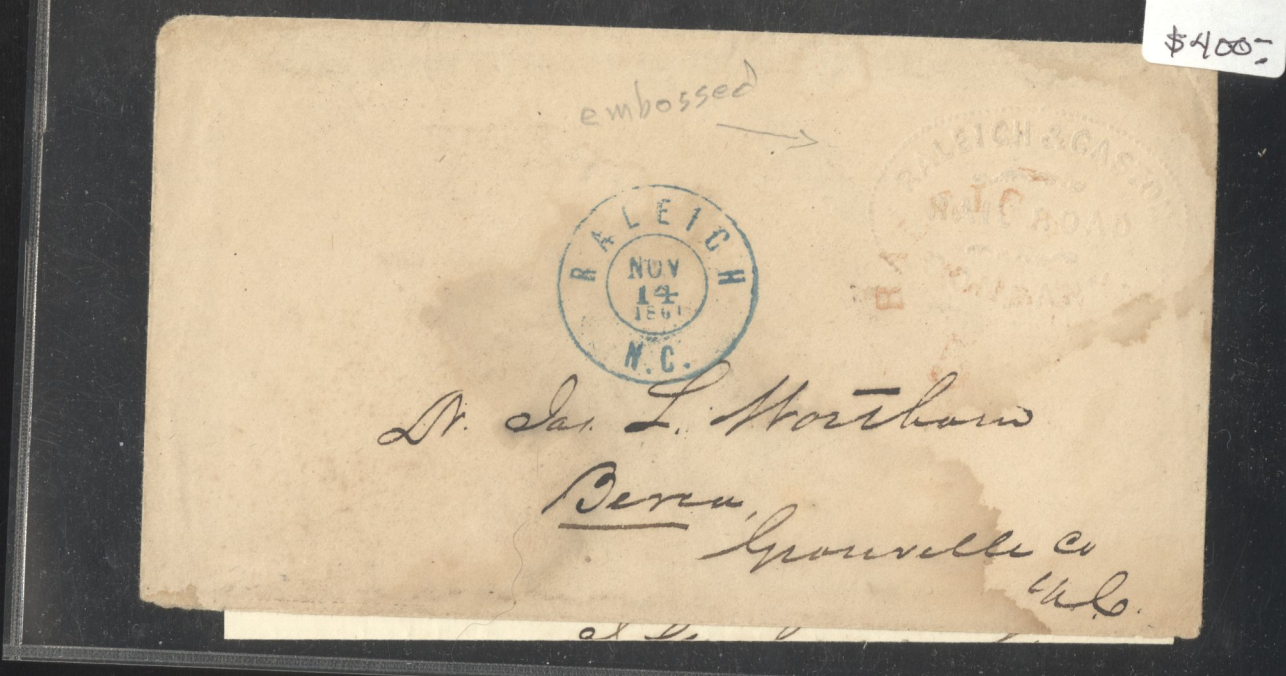 $400-
embossed
RALEIGH & GASTON
RAIL ROAD
RALEIGH
NOV
14
1861
N.C.
Dr. Jas. L. Wortham
Berea,
Granville Co
N.C.